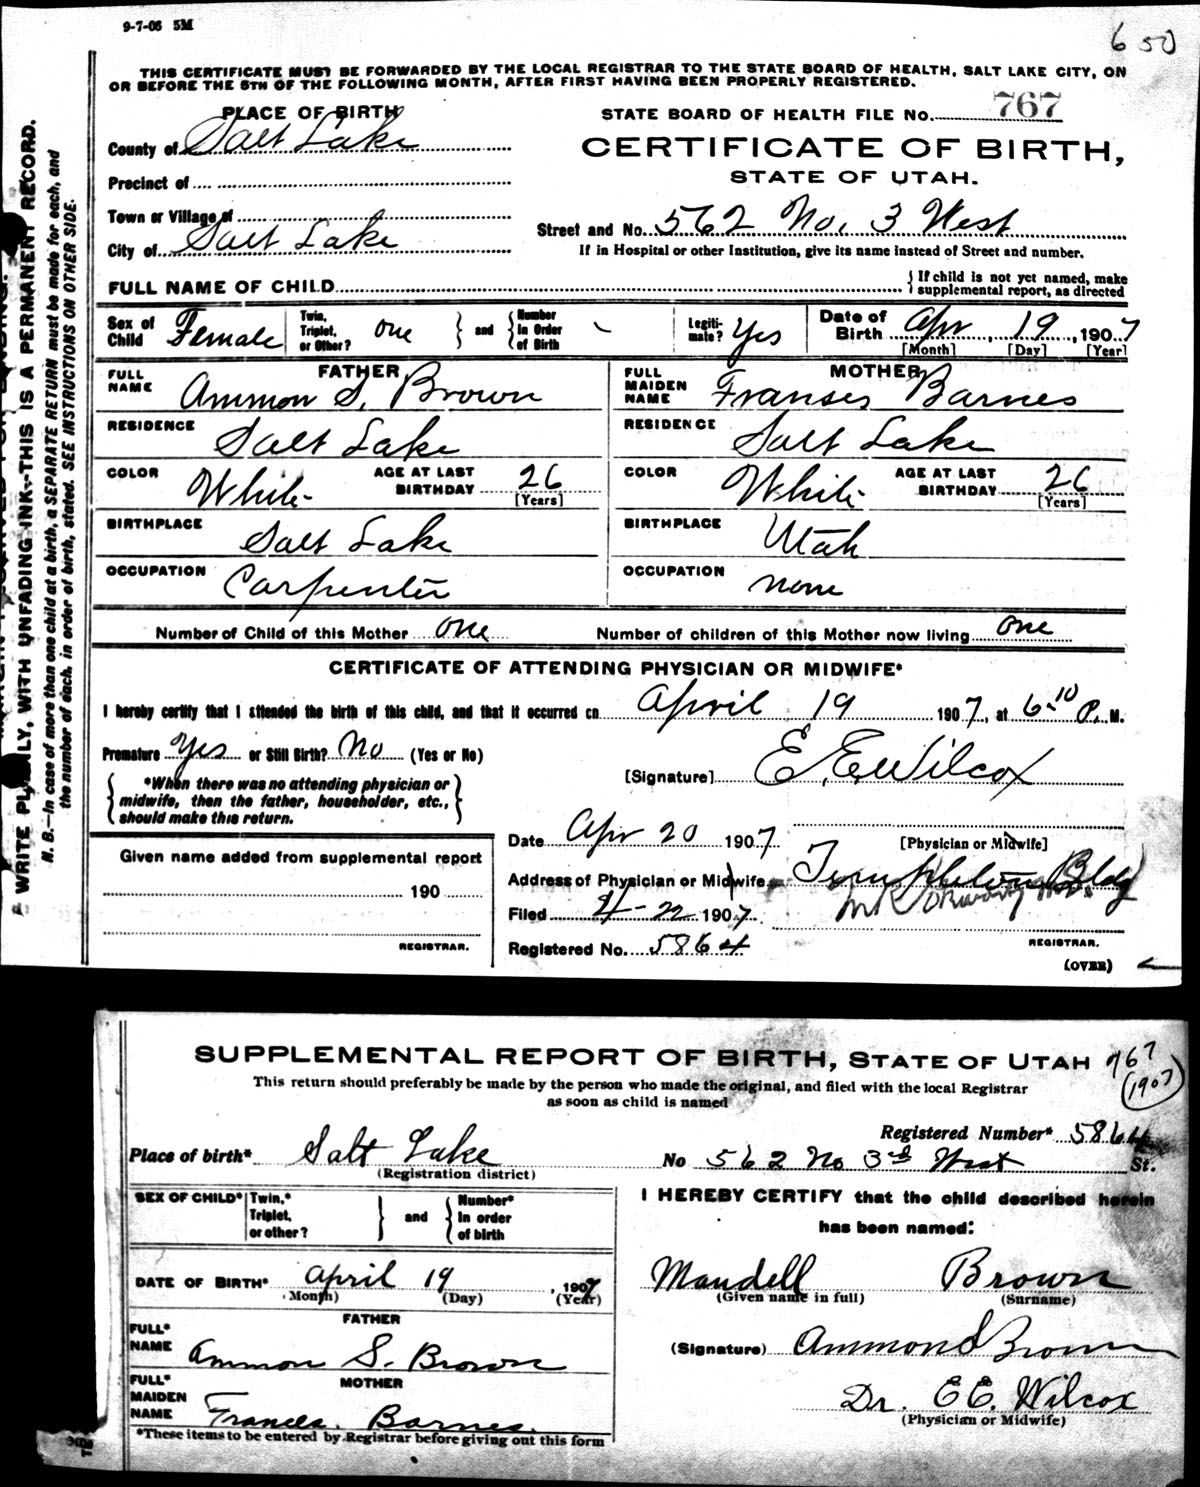 9-7-06 5M
650
THIS CERTIFICATE MUST BE FORWARDED BY THE LOCAL REGISTRAR TO THE STATE BOARD OF HEALTH, SALT LAKE CITY, ON
OR BEFORE THE 5TH OF THE FOLLOWING MONTH, AFTER FIRST HAVING BEEN PROPERLY REGISTERED.
WRITE PLAINLY, WITH UNFADING INK--THIS IS A PERMANENT RECORD.
N. B.—In case of more than one child at a birth, a SEPARATE RETURN must be made for each, and
the number of each, in order of birth, stated. SEE INSTRUCTIONS ON OTHER SIDE.
PLACE OF BIRTH
County of Salt Lake
Precinct of
Town or Village of
City of Salt Lake
STATE BOARD OF HEALTH FILE NO. 767
CERTIFICATE OF BIRTH,
STATE OF UTAH.
Street and No. 562 No. 3 West
If in Hospital or other Institution, give its name instead of Street and number.
FULL NAME OF CHILD
If child is not yet named, make
supplemental report, as directed
Sex of Child Female
Twin, Triplet, or Other? one
and
Number In Order of Birth -
Legitimate? Yes
Date of Birth Apr 19, 1907
[Month] [Day] [Year]
FATHER
FULL NAME Ammon S. Brown
RESIDENCE Salt Lake
COLOR White AGE AT LAST BIRTHDAY 26
[Years]
BIRTHPLACE Salt Lake
OCCUPATION Carpenter
MOTHER
FULL MAIDEN NAME Franses Barnes
RESIDENCE Salt Lake
COLOR White AGE AT LAST BIRTHDAY 26
[Years]
BIRTHPLACE Utah
OCCUPATION none
Number of Child of this Mother one Number of children of this Mother now living one
CERTIFICATE OF ATTENDING PHYSICIAN OR MIDWIFE*
I hereby certify that I attended the birth of this child, and that it occurred on April 19 1907, at 6:10 P. M.
Premature Yes or Still Birth? No (Yes or No)
[Signature] E. E. Wilcox
*When there was no attending physician or
midwife, then the father, householder, etc.,
should make this return.
[Physician or Midwife]
Given name added from supplemental report
190
REGISTRAR.
Date Apr 20 1907
Address of Physician or Midwife Templeton Bldg
Filed 4-22 1907
Registered No. 5864
REGISTRAR.
(OVER)
SUPPLEMENTAL REPORT OF BIRTH, STATE OF UTAH 767
(1907)
This return should preferably be made by the person who made the original, and filed with the local Registrar
as soon as child is named
Registered Number* 5864
Place of birth* Salt Lake No 562 No 3rd West St.
(Registration district)
SEX OF CHILD* Twin,* Triplet, or other? and Number* In order of birth
DATE OF BIRTH* April 19, 1907
(Month) (Day) (Year)
FATHER
FULL* NAME Ammon S. Brown
MOTHER
FULL* MAIDEN NAME Frances Barnes
*These items to be entered by Registrar before giving out this form
I HEREBY CERTIFY that the child described herein
has been named:
Mandell Brown
(Given name in full) (Surname)
(Signature) Ammon S Brown
Dr. E E. Wilcox
(Physician or Midwife)